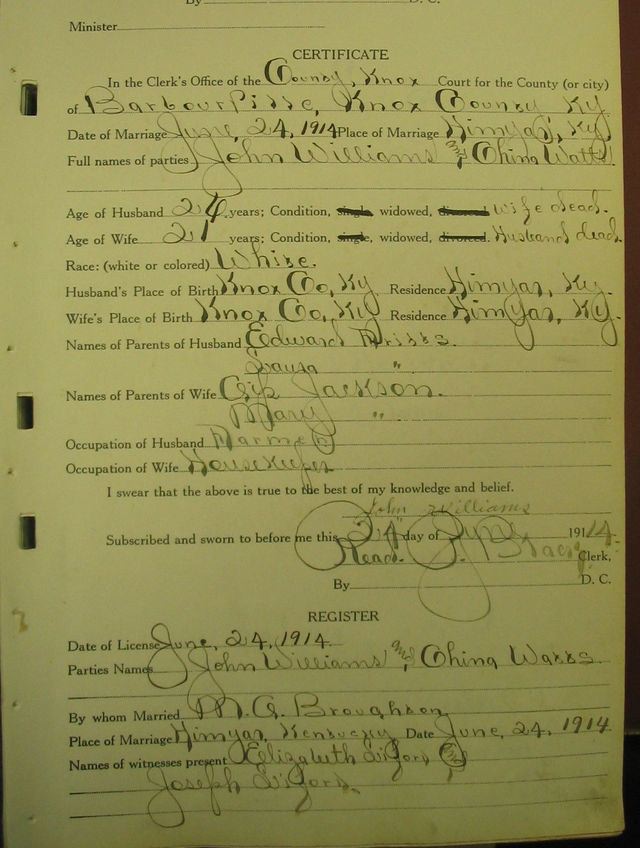 By D. C.
Minister
CERTIFICATE
In the Clerk's Office of the County, Knox Court for the County (or city)
of Barbourville, Knox County Ky
Date of Marriage June, 24, 1914 Place of Marriage Himyar, Ky
Full names of parties John Williams and China Watts
Age of Husband 24 years; Condition, single, widowed, divorced. Wife dead.
Age of Wife 21 years; Condition, single, widowed, divorced. Husband dead.
Race: (white or colored) White.
Husband's Place of Birth Knox Co, Ky Residence Himyar, Ky.
Wife's Place of Birth Knox Co, Ky Residence Himyar, Ky.
Names of Parents of Husband Edward
"
Names of Parents of Wife Jackson.
Mary "
Occupation of Husband Farmer
Occupation of Wife Housekeeper
I swear that the above is true to the best of my knowledge and belief.
John Williams
Subscribed and sworn to before me this 24" day of June 1914.
Read. Clerk,
By D. C.
REGISTER
Date of License June, 24, 1914
Parties Names John Williams and China Watts
By whom Married M. G. Broughton
Place of Marriage Himyar, Kentucky Date June, 24, 1914
Names of witnesses present Elizabeth
Joseph